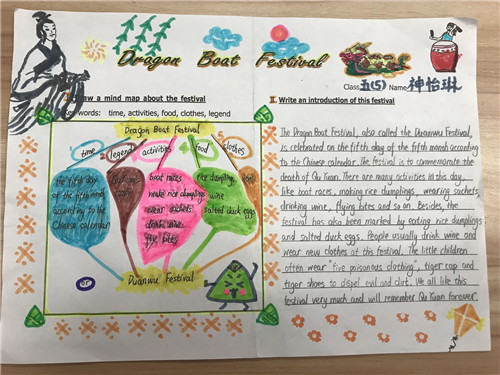 Dragon Boat Festival
Class 五(5) Name 神怡琳
I. Draw a mind map about the festival
Key words: time, activities, food, clothes, legend
Dragon Boat Festival
time
legend
activities
food
clothes
the fifth day
of the fifth month
according to the
Chinese calendar
boat races
make rice dumplings
wear sachets
drink wine
fly kites
rice dumplings
wine
salted duck eggs
or
Duanwu Festival
II. Write an introduction of this festival
The Dragon Boat Festival, also called the Duanwu Festival,
is celebrated on the fifth day of the fifth month according
to the Chinese calendar. The festival is to commemorate the
death of Qu Yuan. There are many activities in this day,
like boat races, making rice dumplings, wearing sachets,
drinking wine, flying bites and so on. Besides, the
festival has also been marked by eating rice dumplings
and salted duck eggs. People usually drink wine and
wear new clothes at this festival. The little children
often wear "five poisonous clothing, tiger cap and
tiger shoes to dispel evil and dirt. We all like this
festival very much and will remember Qu Yuan forever.